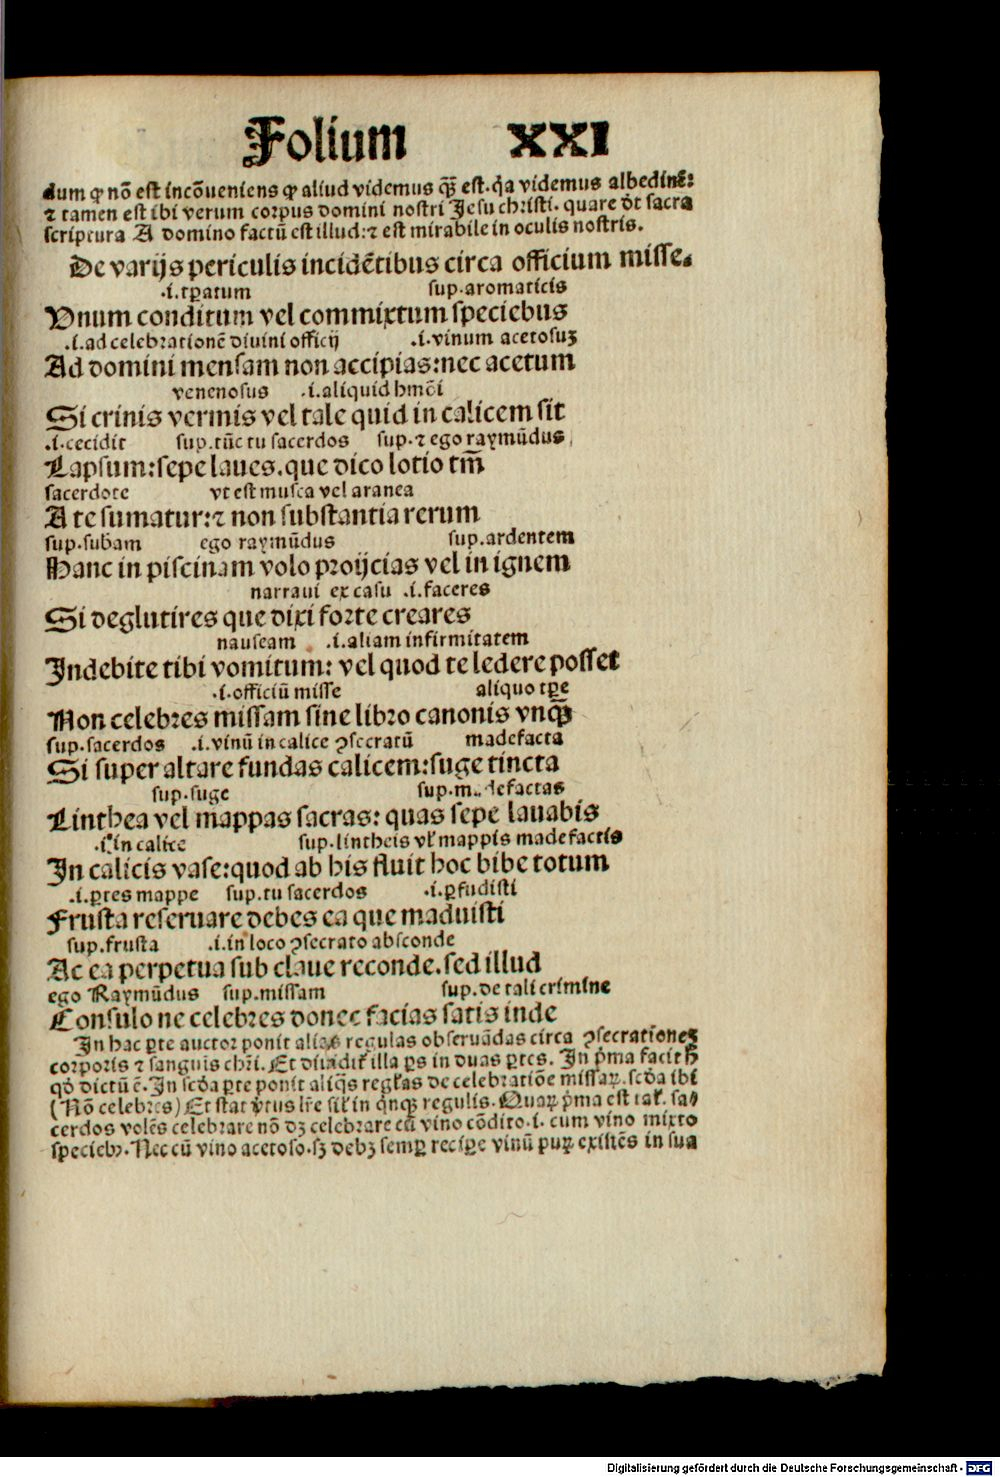 Folium XXI
dum ꝙ nō est incōueniens ꝙ aliud videmus q̄ꝫ est. q̓a videmus albedinē:
⁊ tamen est ibi verum corpus domini nostri Jesu christi. quare dt̄ sacra
scriptura A domino factū est illud: ⁊ est mirabile in oculis nostris.
De varijs periculis incidētibus circa officium misse.
.i. tꝑatum sup. aromaticis
Vnum conditum vel commixtum speciebus
.i. ad celebrationē diuini officij .i. vinum acetosuꝫ
Ad domini mensam non accipias: nec acetum
venenosus .i. aliquid hmōi
Si crinis vermis vel tale quid in calicem sit
.i. cecidit sup. tūc tu sacerdos sup. ⁊ ego raymūdus
Lapsum: sepe laues. que dico lotio tm̄
sacerdote vt est musca vel aranea
A te sumatur: ⁊ non substantia rerum
sup. subam ego raymūdus sup. ardentem
Hanc in piscinam volo proijcias vel in ignem
narraui ex casu .i. faceres
Si deglutires que dixi forte creares
nauseam .i. aliam infirmitatem
Indebite tibi vomitum: vel quod te ledere posset
.i. officiū misse aliquo tꝑe
Non celebres missam sine libro canonis vnq̄ꝫ
sup. sacerdos .i. vinū in calice ꝯsecratū madefacta
Si super altare fundas calicem: suge tincta
sup. suge sup. madefactas
Linthea vel mappas sacras: quas sepe lauabis
.i. in calice sup. lintheis vł mappis madefactis
In calicis vase: quod ab his fluit hoc bibe totum
.i. ꝑtes mappe sup. tu sacerdos .i. ꝑfudisti
Frusta reseruare debes ea que maduisti
sup. frusta .i. in loco ꝯsecrato absconde
Ac ea perpetua sub claue reconde. sed illud
ego Raymūdus sup. missam sup. de tali crimine
Consulo ne celebres donec facias satis inde
In hac ꝑte auctor ponit alias regulas obseruādas circa ꝯsecrationeꝫ
corporis ⁊ sanguis chri̅. Et diuidit̃ illa ꝑs in duas ꝑtes. In p̓ma facit ħ
qđ dictū ē. In scđa ꝑte ponit aliq̓s reglas de celebratiōe missaꝝ. scđa ibi
(Nō celebres) Et stat v̓tus lr̄e sił in q̓nqꝫ regulis. Quaꝝ p̓ma est tał. sa⸗
cerdos volēs celebrare nō dꝫ celebrare cū vino cōdito .i. cum vino mixto
speciebꝫ. Nec cū vino acetoso. sꝫ debꝫ semꝑ recipe vinū puꝝ existēs in sua
Digitalisierung gefördert durch die Deutsche Forschungsgemeinschaft - DFG